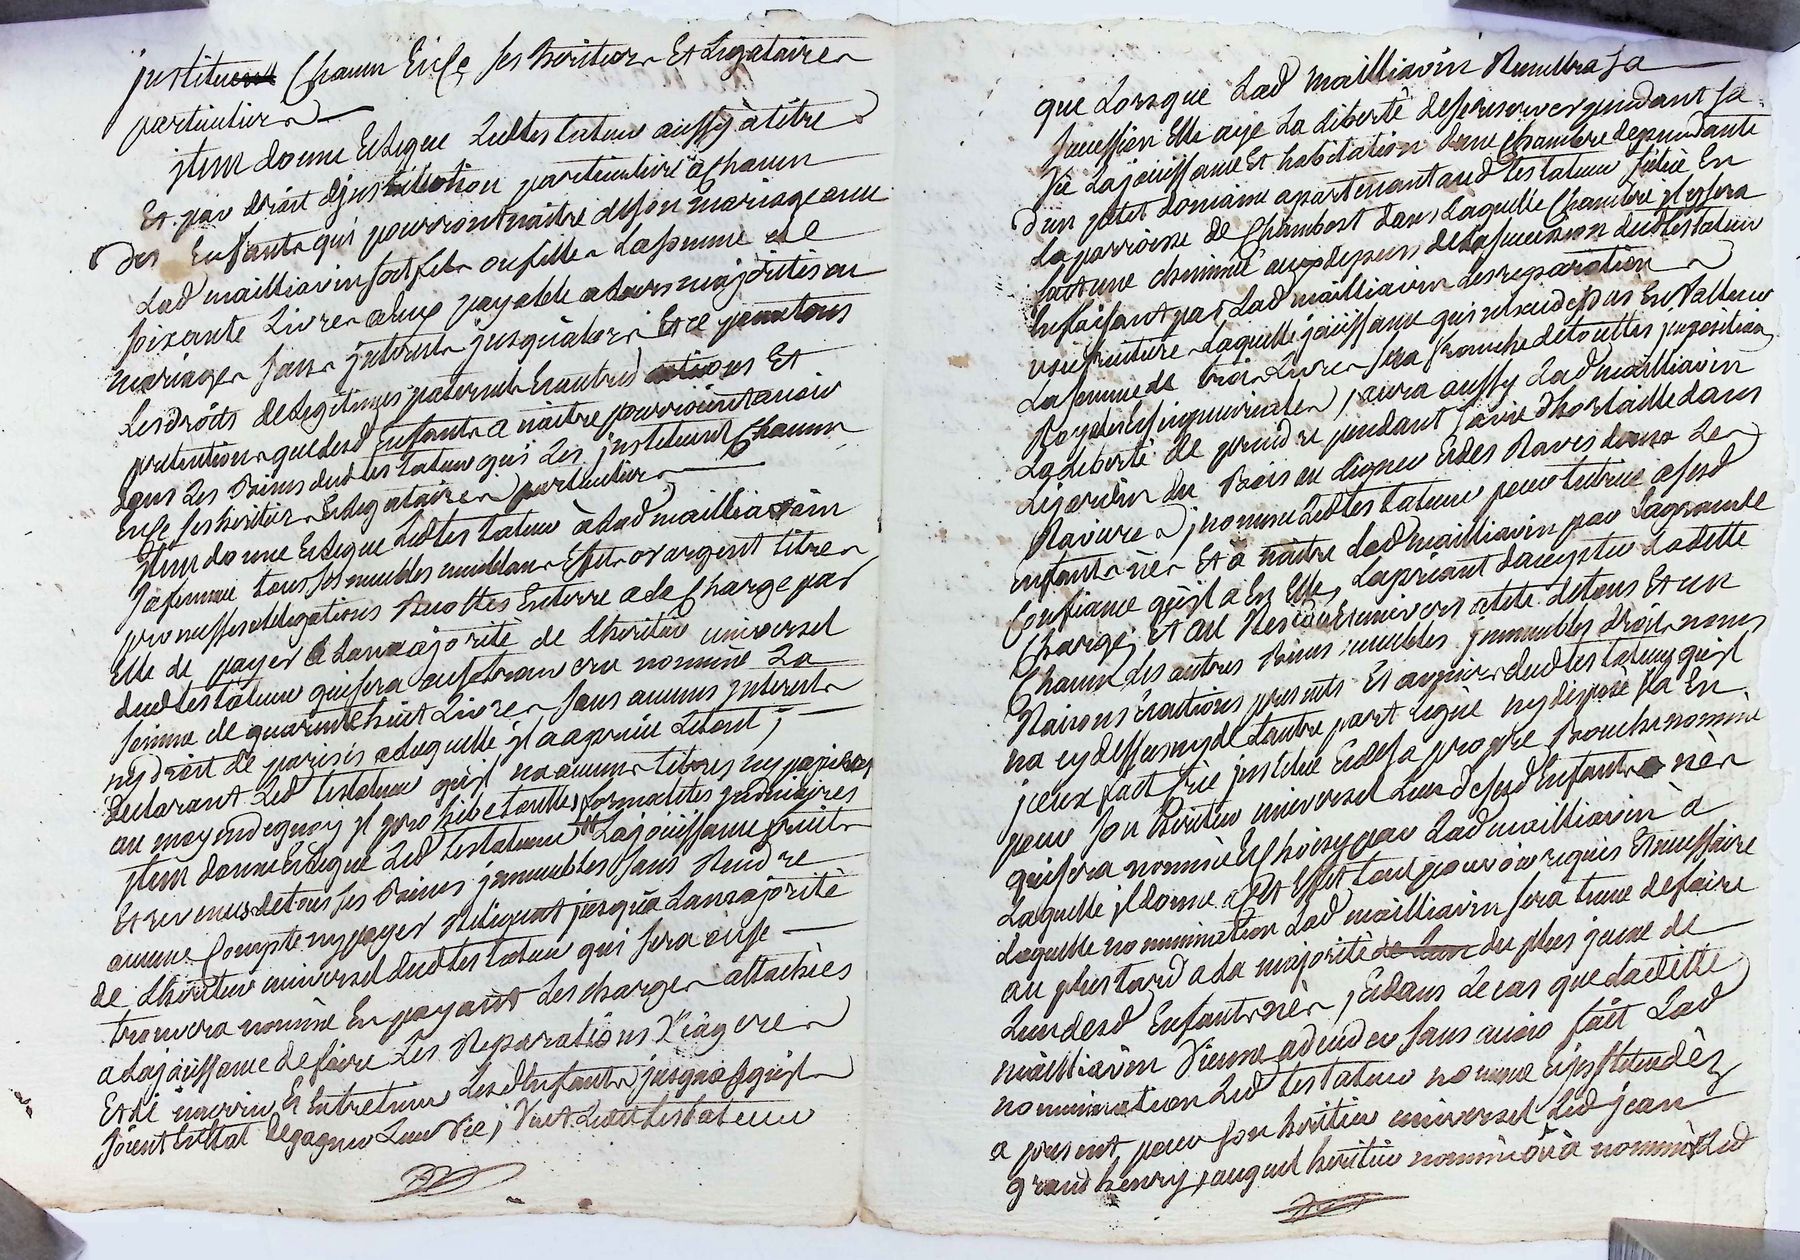 justituent Chacun En Ce ses heritiers Et Legataires
particuliers
jtem donne Et Legue Ledt testateur aussy à titre
Et par droit dJnstitution particuliere a chacun
des Enfants qui pourront naitre de son mariage avec
Lad mailliavin soit fils ou filles La somme de
soixante Livres a eux payable a Leurs majorites ou
mariages sans jnterests jusqualors Et ce pour tous
Les droits de Legitimes paternels Et autres actions Et
pretentions que lesd Enfants a naitre pourroient avoir
dans Les Biens dud testateur qui Les jnstituent Chacun
En Ce ses heritiers Et Legataires particuliers
Jtem donne Et Legue Led testateur à Lad mailliavin
sa femme tous ses meubles meublans Effets or argent titres
promesses obligations Recoltes En terre a la Charge par
Elle de payer a La majorité de Lheritier universel
dud testateur qui sera cy se trouvera nommé La
somme de quarante huit Livres sans aucuns jnterests
ny droit de parisis a laquelle jl a aprecié Letout ;
declarant Led testateur quijl na aucuns titres ny papiers
au moyen de quoy jl prohibe touttes formalités judiciaires
jtem donne Et Legue Led testateur La joüissance fruits
Et revenus de tous ses Biens jmmeubles sans Rendre
aucuns Compte ny payer Reliquat jusqua La majorité
de Lheritier universel dud testateur qui sera ou se
trouvera nommé En payant Les charges attachées
a La joüissance de faire Les Reparations Viageres
Et de nourrir Et Entretenir Lesd Enfants jusqua ce quijls
soient En Etat de gagner Leur Vie ; Veut Ledit testateur
que Lorsque Lad Mailliavin Remettra sa
succession Elle aye La Liberté de se reserver pendant sa
Vie La joüissance Et habitation dune Chambre dependante
dun petit domaine apartenant aud testateur situé En
La parroisse de Chambost dans Laquelle Chambre jl sera
fait une cheminée aux depens de La succession dud testateur
En faisant par Lad mailliavin Les reparations
usufruitieres Laquelle joüissance qui nexcede pas En Valleur
La somme de trois Livres sera franche de touttes jmpositions
Royales Et seigneuriales, aura aussy Lad mailliavin
La Liberté de prendre pendant sa vie dhortaille dans
Le jardin du Bois au Ligner Et des Raves dans Les
Ravieres, jl nomme Led testateur pour tutrice a sesd
Enfants nés Et à naitre Lad mailliavin par La grande
Confiance quijl a En Elle, La priant daccepter Ladette
Charge ; Et au Residu Et univers atité de tous Et un
Chacun Les autres Biens meubles jmmeubles droits noms
Raisons Et actions presents Et avenirs dud testateur quijl
na cy dessus ny de Lautre part Legué ny disposé jl a En
jceux fait Crée jnstitué Et de sa propre Bouche nommé
pour son heritier universel Lun de sesd Enfants nés
qui sera nommé Et choisy par Lad mailliavin à
Laquelle jl donne à cet Effet tout pouvoir requis Et necessaire
Laquelle nomination Lad mailliavin sera tenue de faire
au plus tard a La majorité de Lun du plus jeune de
Lun desd Enfants nés, Et dans Le cas que Ladette
mailliavin Vienne a deceder sans avoir fait Lad
nomination Led testateur nomme Et jnstitue dès
a present pour son heritier universel Led jean
grand henry, auquel heritier nommé où à nommer Led